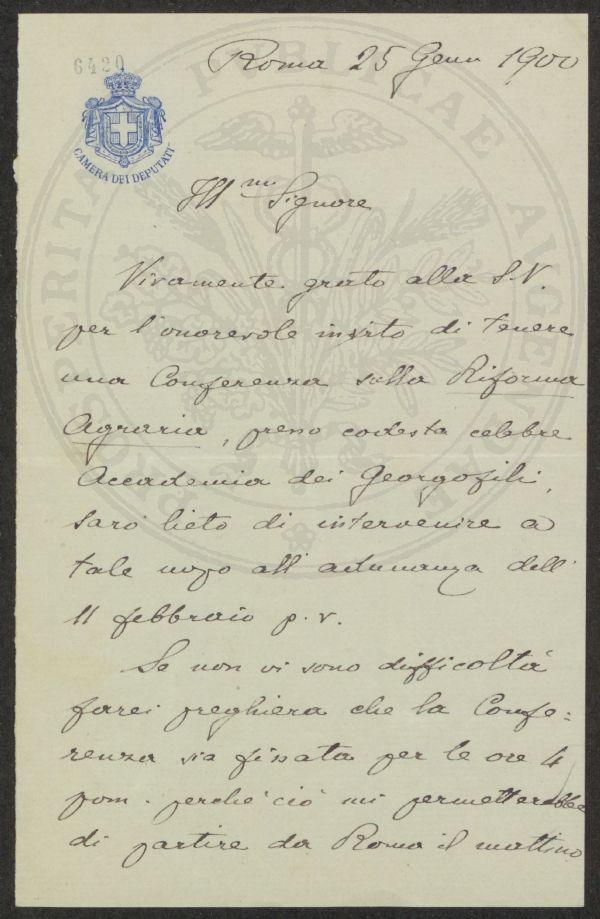 6420
Roma 25 Genn 1900
CAMERA DEI DEPUTATI
Ill^mo Signore
Vivamente grato alla S.V.
per l'onorevole invito di tenere
una Conferenza sulla Riforma
Agraria, presso codesta celebre
Accademia dei Georgofili,
sarò lieto di intervenire a
tale uopo all'adunanza dell'
11 febbraio p.v.
Se non vi sono difficoltà
farei preghiera che la Confe=
renza sia fissata per le ore 4
pom. perché ciò mi permetterebbe
di partire da Roma il mattino
PROSPERITATI PUBLICAE AUGENDAE